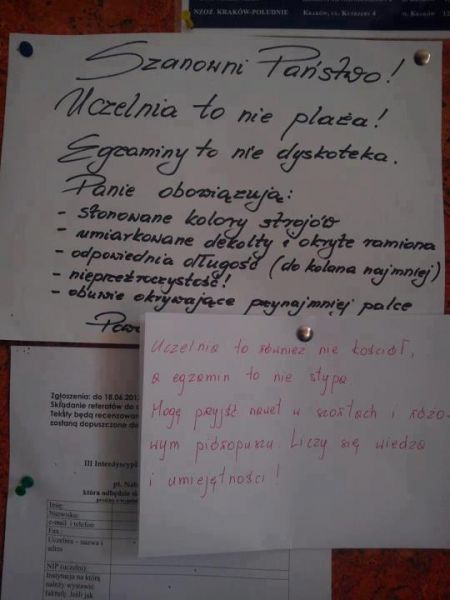 NZOZ KRAKÓW-POŁUDNIE
Kraków, ul. Kutrzeby 4
Szanowni Państwo!
Uczelnia to nie plaża!
Egzaminy to nie dyskoteka.
Panie obowiązują:
- stonowane kolory strojów
- umiarkowane dekolty i okryte ramiona
- odpowiednia długość (do kolana najmniej)
- nieprzeźroczystość!
- obuwie okrywające przynajmniej palce
Uczelnia to również nie kościół,
a egzamin to nie stypa.
Mogę przyjść nawet w szortach i różo-
wym pióropuszu. Liczy się wiedza
i umiejętności!
Zgłoszenia: do 18.06.201
Składanie referatów do
Teksty będą recenzowan
zostaną dopuszczone do
III Interdyscypl
pt. Nab
która odbędzie si
Imię:
Nazwisko:
e-mail i telefon
Fax.:
Uczelnia – nazwa i
adres
NIP uczelni:
Instytucja na którą
należy wystawić
fakturę. Jeśli jak